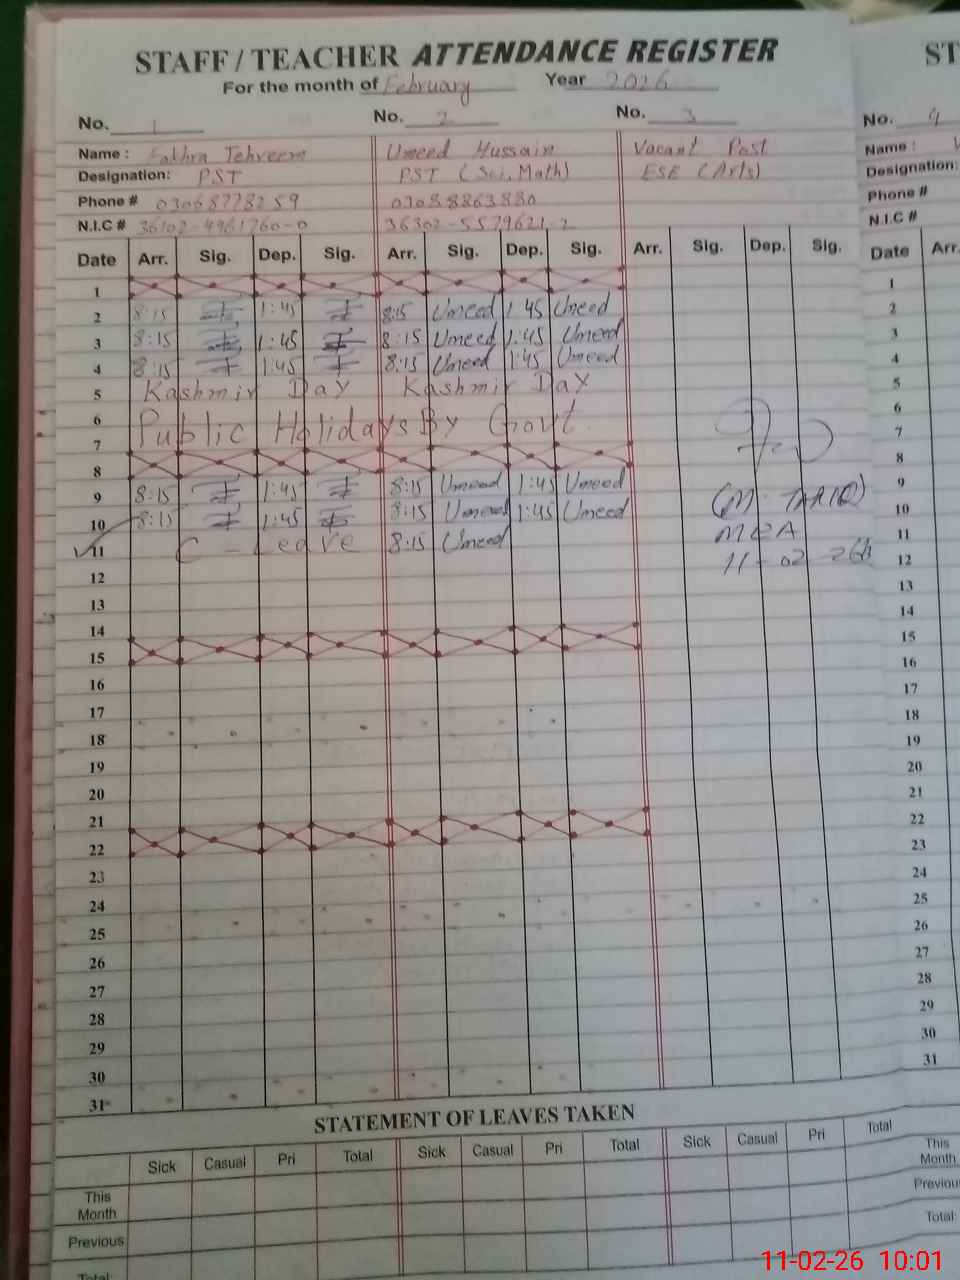 STAFF / TEACHER ATTENDANCE REGISTER
For the month of February Year 2026
No. 1 No. 2 No. 3
Name : Fakhra Tehreem Umeed Hussain Vacant Post
Designation: PST PST (Sci, Math) ESE (Arts)
Phone # 03068778259 03088863880
N.I.C # 36302-5579621-2
Date Arr. Sig. Dep. Sig. Arr. Sig. Dep. Sig. Arr. Sig. Dep. Sig.
1
2 8:15 1:45 8:15 Umeed 1 45 Umeed
3 8:15 1:45 8:15 Umeed 1:45 Umeed
4 8:15 1:45 8:15 Umeed 1:45 Umeed
5 Kashmir Day Kashmir Day
6 Public Holidays By Govt.
7
8
9 8:15 1:45 8:15 Umeed 1:45 Umeed
10 8:15 1:45 8:15 Umeed 1:45 Umeed
11 C - Leave 8:15 Umeed
(M. TARIQ)
MEA
11-02-26
12
13
14
15
16
17
18
19
20
21
22
23
24
25
26
27
28
29
30
31
STATEMENT OF LEAVES TAKEN
Sick Casual Pri Total Sick Casual Pri Total Sick Casual Pri Total
This Month
Previous
Total
ST
No. 4
Name :
Designation:
Phone #
N.I.C #
Date Arr.
1
2
3
4
5
6
7
8
9
10
11
12
13
14
15
16
17
18
19
20
21
22
23
24
25
26
27
28
29
30
31
This Month
Previou
Total:
11-02-26 10:01